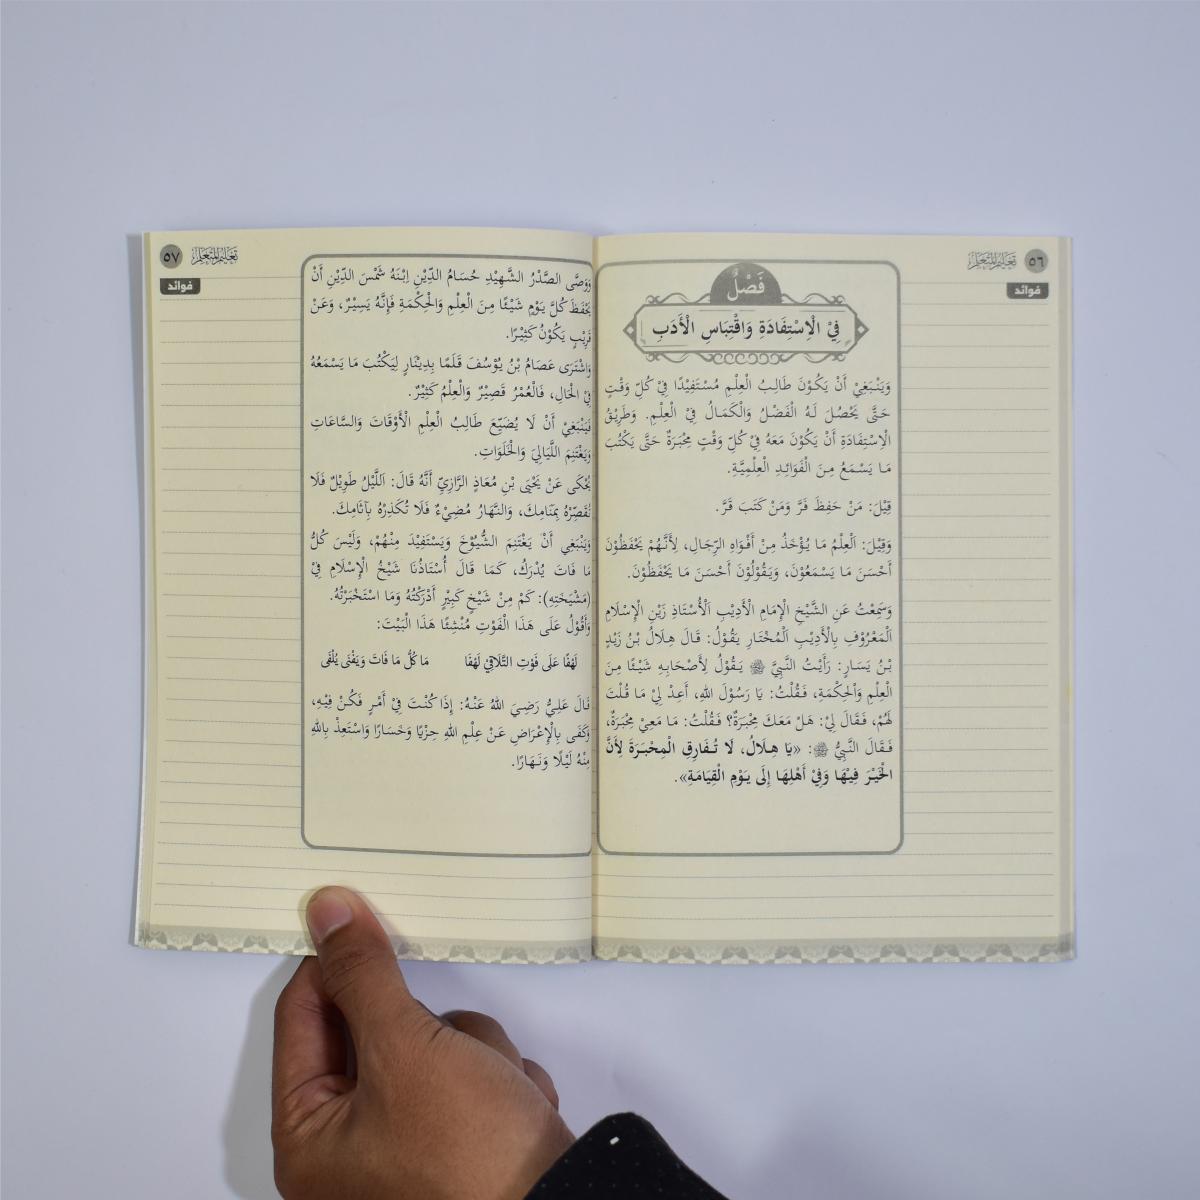 ٥٦
تعليم المتعلم
فوائد
فَصْلٌ
فِيْ الْاِسْتِفَادَةِ وَاقْتِبَاسِ الْأَدَبِ
وَيَنْبَغِيْ أَنْ يَكُوْنَ طَالِبُ الْعِلْمِ مُسْتَفِيْدًا فِيْ كُلِّ وَقْتٍ
حَتَّى يَحْصُلَ لَهُ الْفَضْلُ وَالْكَمَالُ فِيْ الْعِلْمِ. وَطَرِيْقُ
الْاِسْتِفَادَةِ أَنْ يَكُوْنَ مَعَهُ فِيْ كُلِّ وَقْتٍ مِحْبَرَةٌ حَتَّى يَكْتُبَ
مَا يَسْمَعُ مِنَ الْفَوَائِدِ الْعِلْمِيَّةِ.
قِيْلَ: مَنْ حَفِظَ فَرَّ وَمَنْ كَتَبَ قَرَّ.
وَقِيْلَ: اَلْعِلْمُ مَا يُؤْخَذُ مِنْ أَفْوَاهِ الرِّجَالِ، لِأَنَّهُمْ يَحْفَظُوْنَ
أَحْسَنَ مَا يَسْمَعُوْنَ، وَيَقُوْلُوْنَ أَحْسَنَ مَا يَحْفَظُوْنَ.
وَسَمِعْتُ عَنِ الشَّيْخِ الْإِمَامِ الْأَدِيْبِ اَلْأُسْتَاذِ زَيْنِ الْإِسْلَامِ
اَلْمَعْرُوْفِ بِالْأَدِيْبِ اَلْمُخْتَارِ يَقُوْلُ: قَالَ هِلَالُ بْنُ زَيْدِ
بْنُ يَسَارٍ: رَأَيْتُ النَّبِيَّ ﷺ يَقُوْلُ لِأَصْحَابِهِ شَيْئًا مِنَ
الْعِلْمِ وَالْحِكْمَةِ، فَقُلْتُ: يَا رَسُوْلَ اللهِ، أَعِدْ لِيْ مَا قُلْتَ
لَهُمْ، فَقَالَ لِيْ: هَلْ مَعَكَ مِحْبَرَةٌ؟ فَقُلْتُ: مَا مَعِيْ مِحْبَرَةٌ،
فَقَالَ النَّبِيُّ ﷺ: «يَا هِلَالُ، لَا تُفَارِقِ الْمِحْبَرَةَ لِأَنَّ
الْخَيْرَ فِيْهَا وَفِيْ أَهْلِهَا إِلَى يَوْمِ الْقِيَامَةِ».
٥٧
تعليم المتعلم
فوائد
وَوَصَّى الصَّدْرُ الشَّهِيْدِ حُسَامُ الدِّيْنِ اِبْنَهُ شَمْسَ الدِّيْنِ أَنْ
يَحْفَظَ كُلَّ يَوْمٍ شَيْئًا مِنَ الْعِلْمِ وَالْحِكْمَةِ فَإِنَّهُ يَسِيْرٌ، وَعَنْ
قَرِيْبٍ يَكُوْنُ كَثِيْرًا.
وَاشْتَرَى عَصَامُ بْنُ يُوْسُفَ قَلَمًا بِدِيْنَارٍ لِيَكْتُبَ مَا يَسْمَعُهُ
فِيْ الْحَالِ، فَالْعُمْرُ قَصِيْرٌ وَالْعِلْمُ كَثِيْرٌ.
فَيَنْبَغِيْ أَنْ لَا يُضَيِّعَ طَالِبُ الْعِلْمِ الْأَوْقَاتَ وَالسَّاعَاتِ
وَيَغْتَنِمَ اللَّيَالِيَ وَالْخَلَوَاتِ.
يُحْكَى عَنْ يَحْيَى بْنِ مُعَاذٍ الرَّازِيِّ أَنَّهُ قَالَ: اَللَّيْلُ طَوِيْلٌ فَلَا
تُقَصِّرْهُ بِمَنَامِكَ، وَالنَّهَارُ مُضِيْءٌ فَلَا تُكَدِّرْهُ بِآثَامِكَ.
وَيَنْبَغِي أَنْ يَغْتَنِمَ الشُّيُوْخَ وَيَسْتَفِيْدَ مِنْهُمْ، وَلَيْسَ كُلُّ
مَا فَاتَ يُدْرَكُ، كَمَا قَالَ أُسْتَاذُنَا شَيْخُ الْإِسْلَامِ فِيْ
(مَشْيَخَتِهِ): كَمْ مِنْ شَيْخٍ كَبِيْرٍ أَدْرَكْتُهُ وَمَا اسْتَخْبَرْتُهُ.
وَأَقُوْلُ عَلَى هَذَا الْفَوْتِ مُنْشِئًا هَذَا الْبَيْتَ:
لَهْفًا عَلَى فَوْتِ التَّلَاقِيْ لَهْفَا مَا كُلُّ مَا فَاتَ وَيَفْنَى يُلْفَى
قَالَ عَلِيٌّ رَضِيَ اللهُ عَنْهُ: إِذَا كُنْتَ فِيْ أَمْرٍ فَكُنْ فِيْهِ،
وَكَفَى بِالْإِعْرَاضِ عَنْ عِلْمِ اللهِ خِزْيًا وَخَسَارًا وَاسْتَعِذْ بِاللهِ
مِنْهُ لَيْلًا وَنَهَارًا.